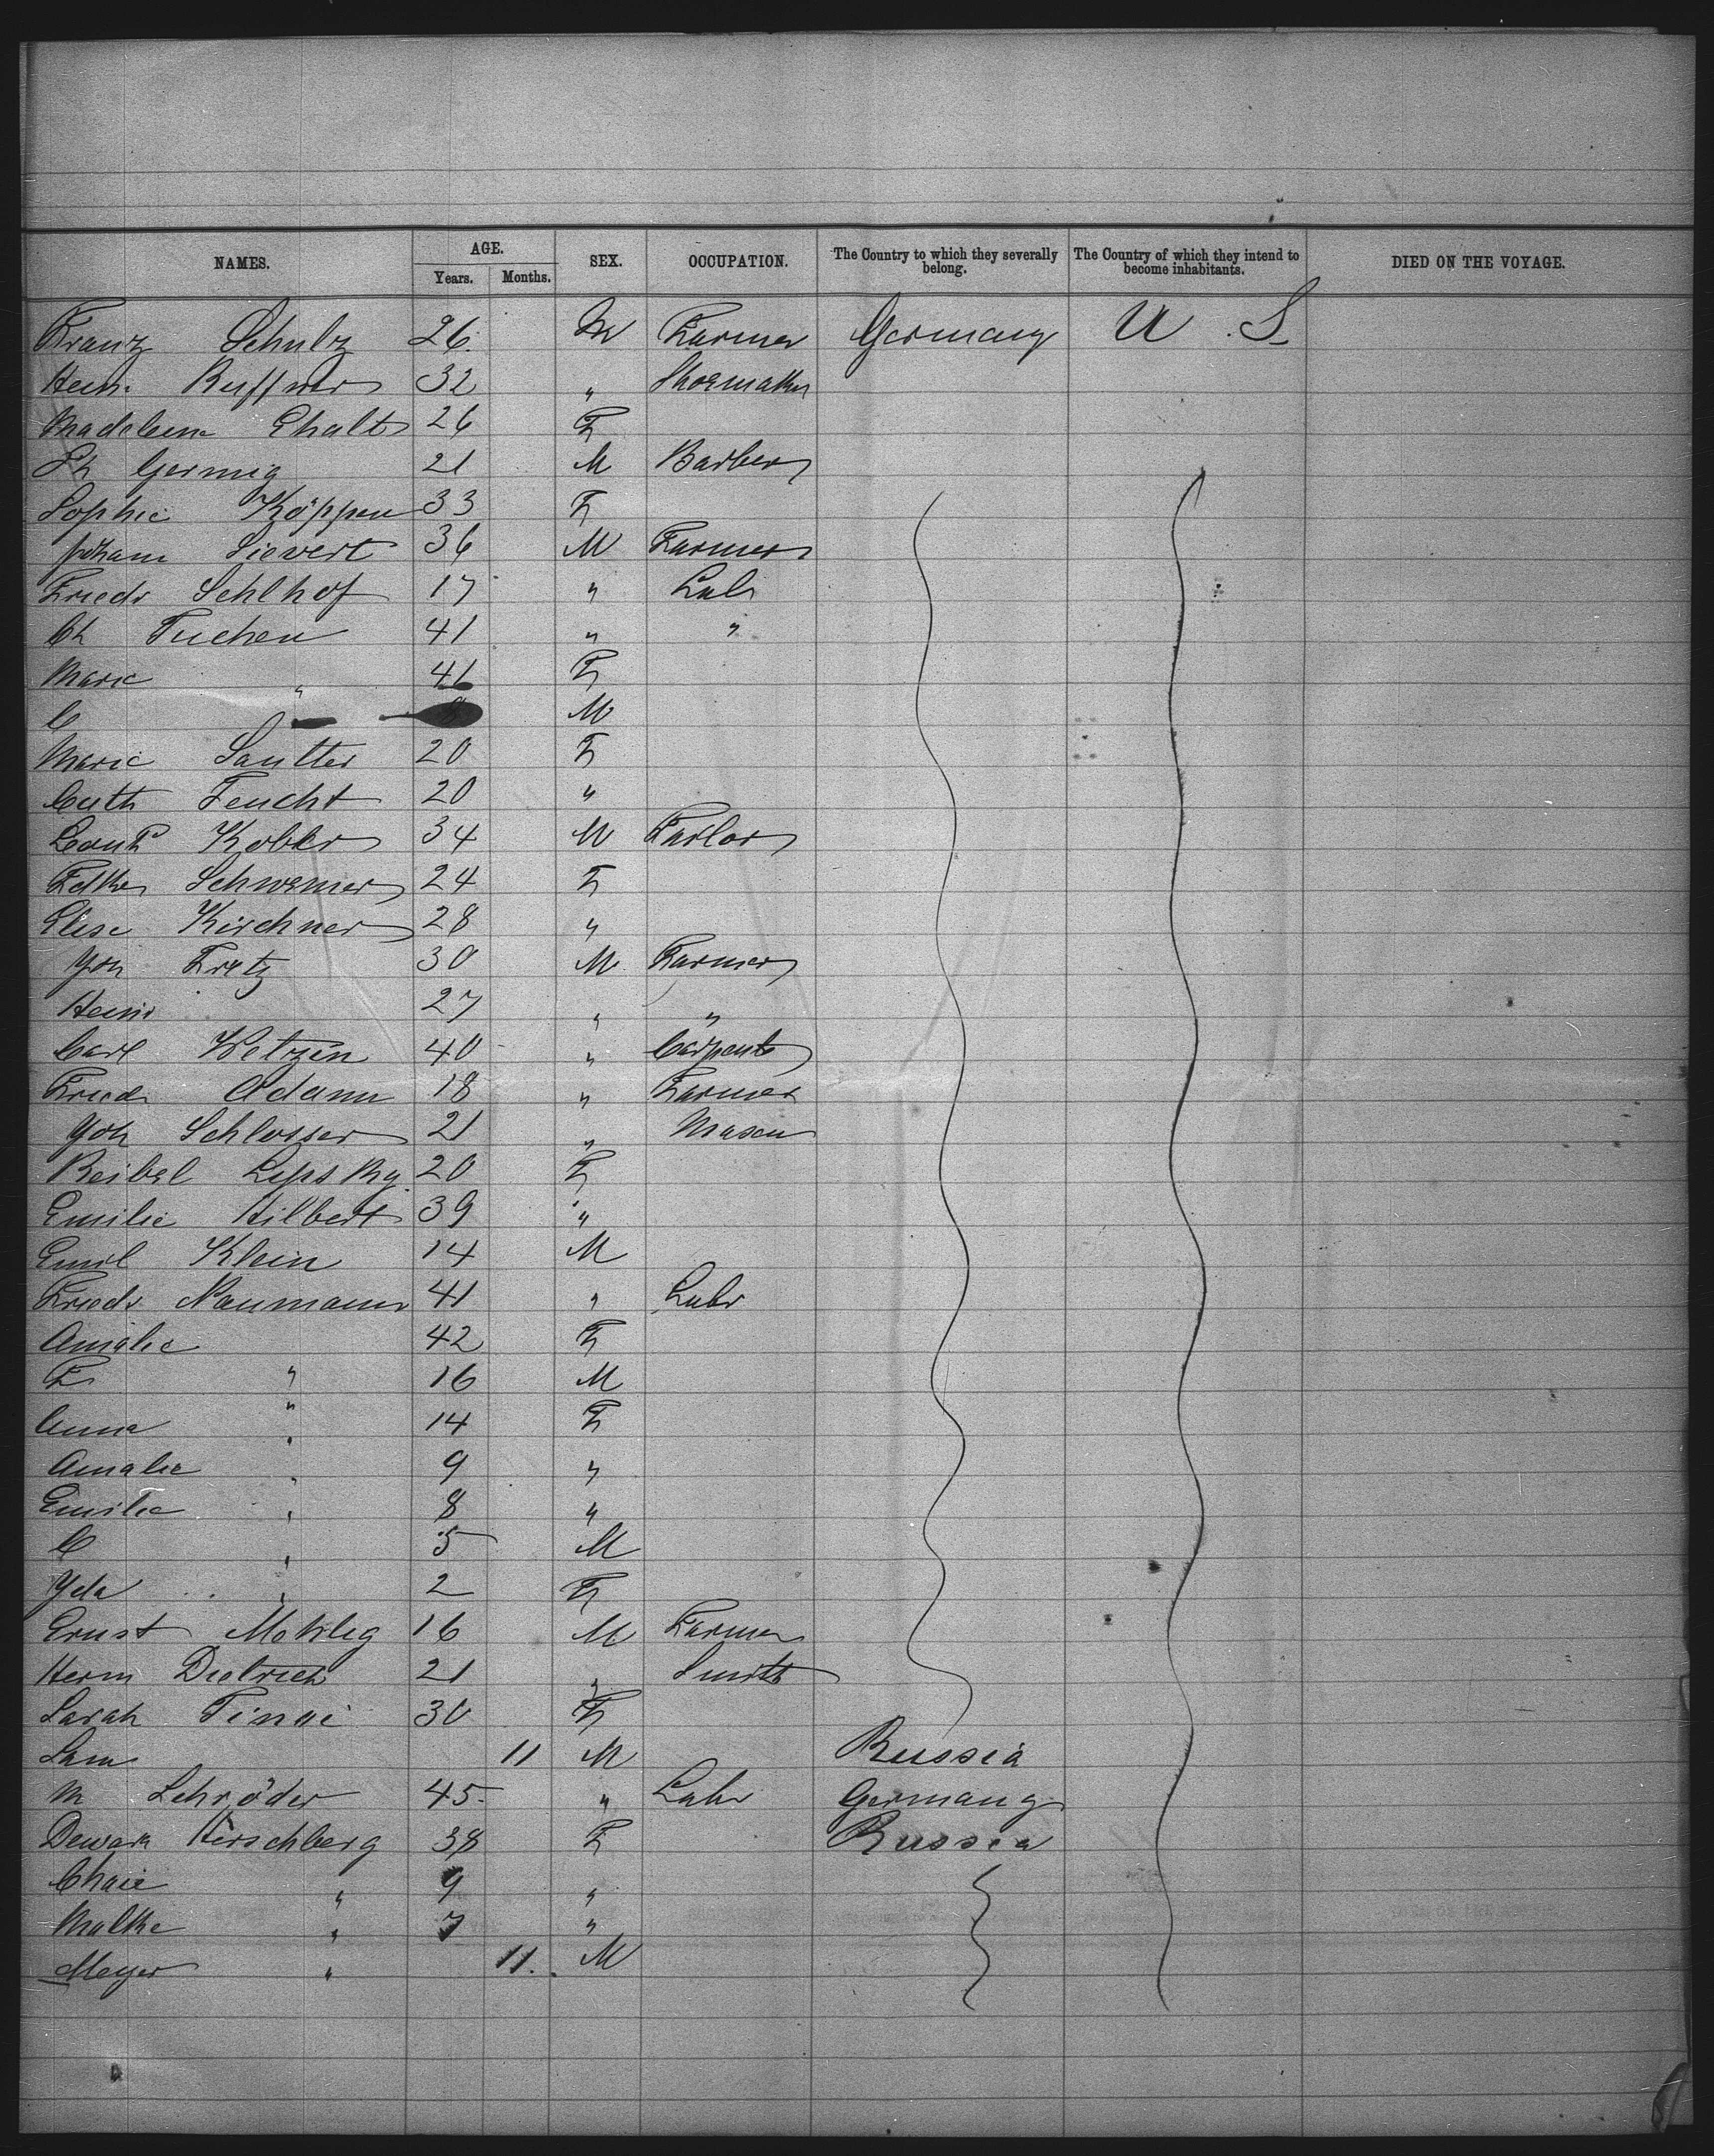 NAMES. AGE. SEX. OCCUPATION. The Country to which they severally belong. The Country of which they intend to become inhabitants. DIED ON THE VOYAGE.
Years. Months.
Franz Schulz 26 M Farmer Germany U. S.
Hein. Ruffner 32 " Shoemaker
Madeleine Ehalt 26 F
Ph Germig 21 M Barber
Sophie Köppen 33 F
Johann Sievert 36 M Farmer
Friedr Sehlhof 17 " Labr
Ch Tuchen 41 " "
Marie " 41 F
C 8 M
Marie Sautter 20 F
Cath Feucht 20 "
Kobler 34 M Tailor
Schwemer 24 F
Elise Kirchner 28 "
Joh Fretz 30 M Farmer
Heinr 27 " "
Carl Wetzin 40 " Carpenter
Friedr Adam 18 " Farmer
Joh Schlosser 21 " Mason
Reibel Lipsky 20 F
Emilie Hilbert 39 "
Emil Klein 14 M
Friedr Naumann 41 " Labr
Amalie 42 F
F " 16 M
Anna " 14 F
Amalie " 9 "
Emilie " 8 "
C " 5 M
Yda " 2 F
Ernst Mohlig 16 M Farmer
Herm Dietrich 21 " Smith
Sarah 30 F
Sam 11 M Russia
M Schröder 45 " Labr Germany
Dewara Herschberg 38 F Russia
Chaie " 9 "
Malke " 7 "
Meyer " 11. M